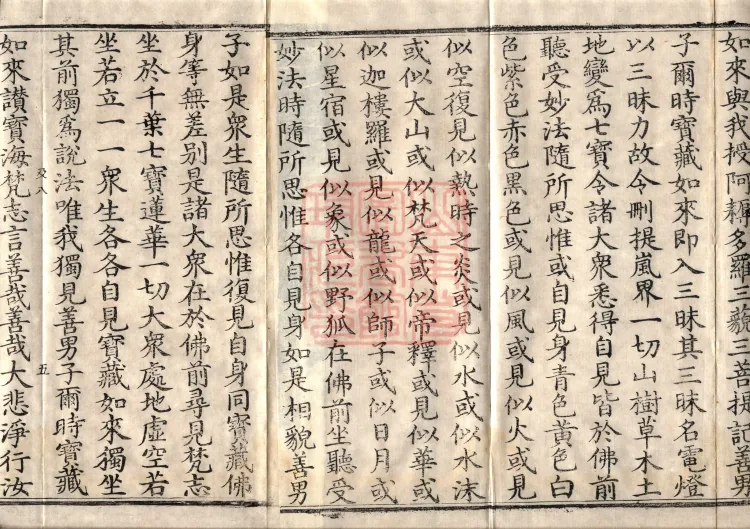 如來與我授阿耨多羅三藐三菩提記善男
子爾時寶藏如來即入三昧其三昧名電燈
以三昧力故令刪提嵐界一切山樹草木土
地變爲七寶令諸大衆悉得自見皆於佛前
聽受妙法隨所思惟或自見身青色黃色白
色紫色赤色黑色或見似風或見似火或見
似空復見似熱時之炎或見似水或似水沫
或似大山或似梵天或似帝釋或見似華或
似迦樓羅或見似龍或似師子或似日月或
似星宿或見似象或似野狐在佛前坐聽受
妙法時隨所思惟各自見身如是相貌善男
子如是衆生隨所思惟復見自身同寶藏佛
身等無差别是諸大衆在於佛前尋見梵志
坐於千葉七寶蓮華一切大衆處地虛空若
坐若立一一衆生各各自見寶藏如來獨坐
其前獨爲說法唯我獨見善男子爾時寶藏
五
如來讃寶海梵志言善哉善哉大悲淨行汝